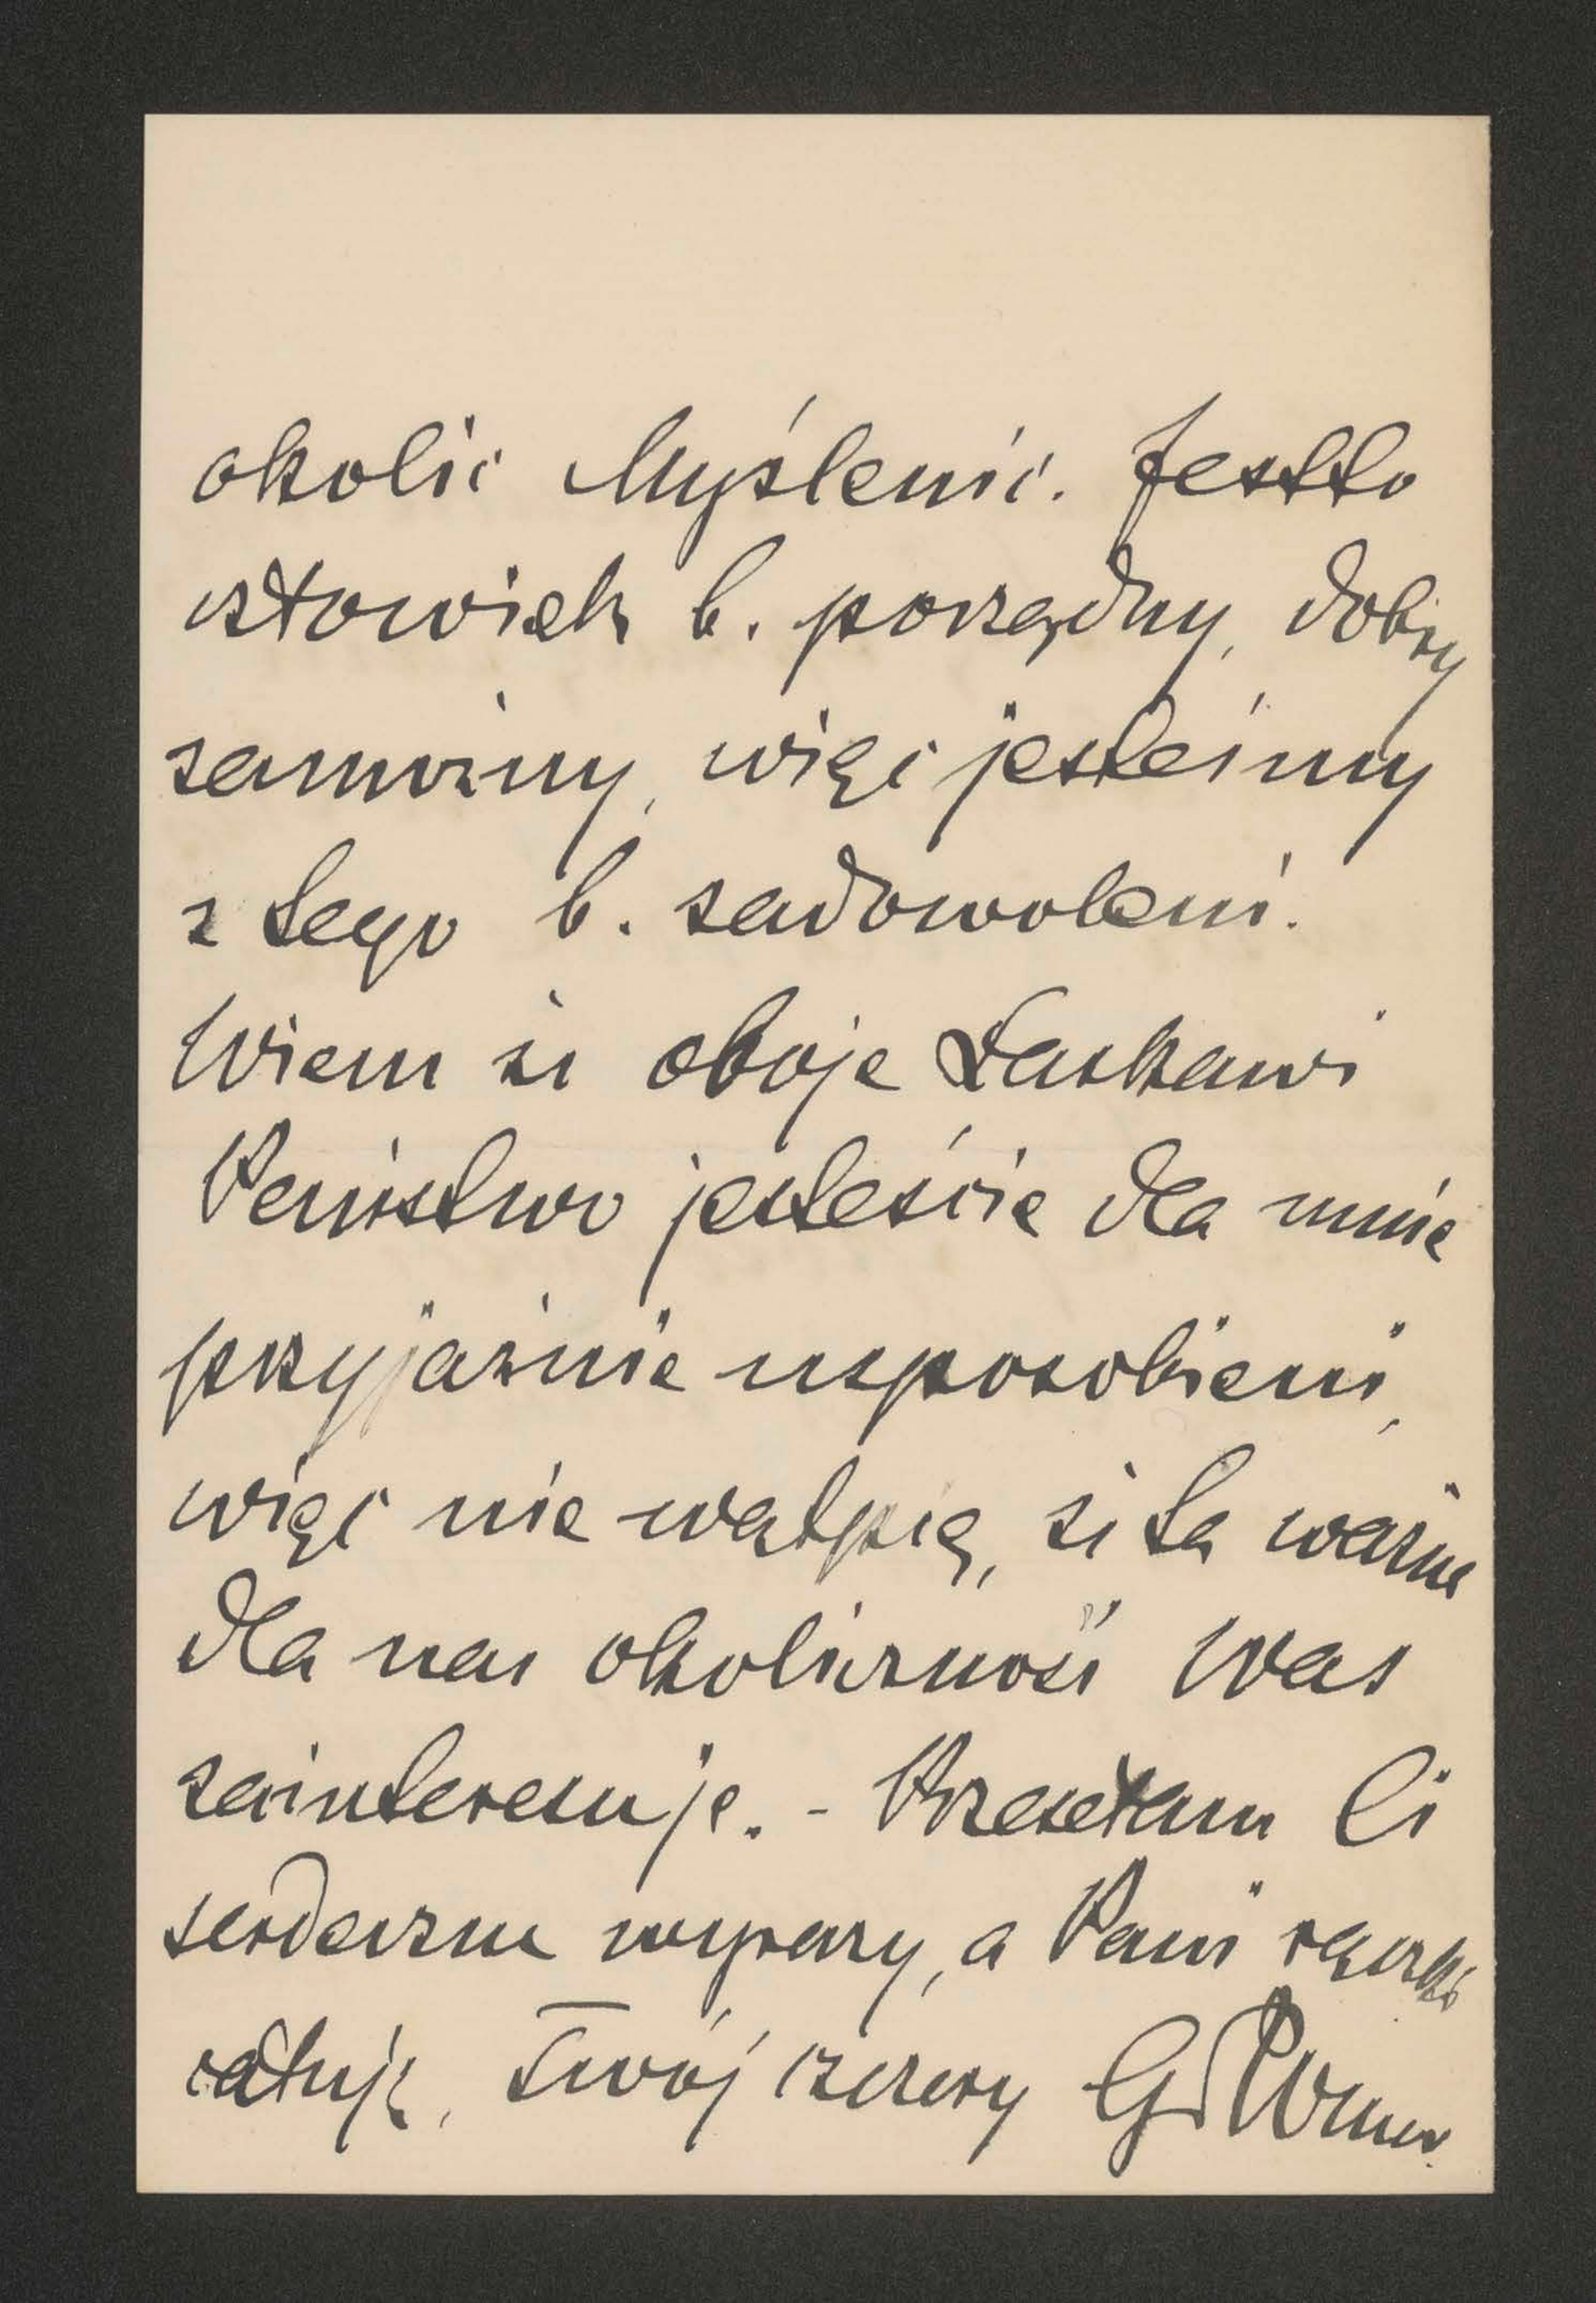 okolic Myślenic. Jestto
człowiek b. porządny, dobry
zamożny, więc jesteśmy
z tego b. zadowoleni.
Wiem że oboje Łaskawi
Państwo jesteście dla mnie
przyjaźnie usposobieni,
więc nie wątpię, że ta ważna
dla nas okoliczność Was
zainteresuje. - Przesełam Ci
serdeczne wyrazy, a Pani rączki
całuję, Twój szczery